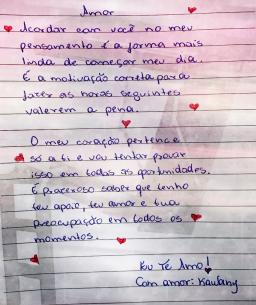 Amor
Acordar com você no meu
pensamento é a forma mais
linda de começar meu dia.
É a motivação correta para
fazer as horas seguintes
valerem a pena.
O meu coração pertence
só a ti e vou tentar provar
isso em todas as oportunidades.
É prazeroso saber que tenho
teu apoio, teu amor e tua
preocupação em todos os
momentos.
Eu Te Amo!
Com amor: Kauany